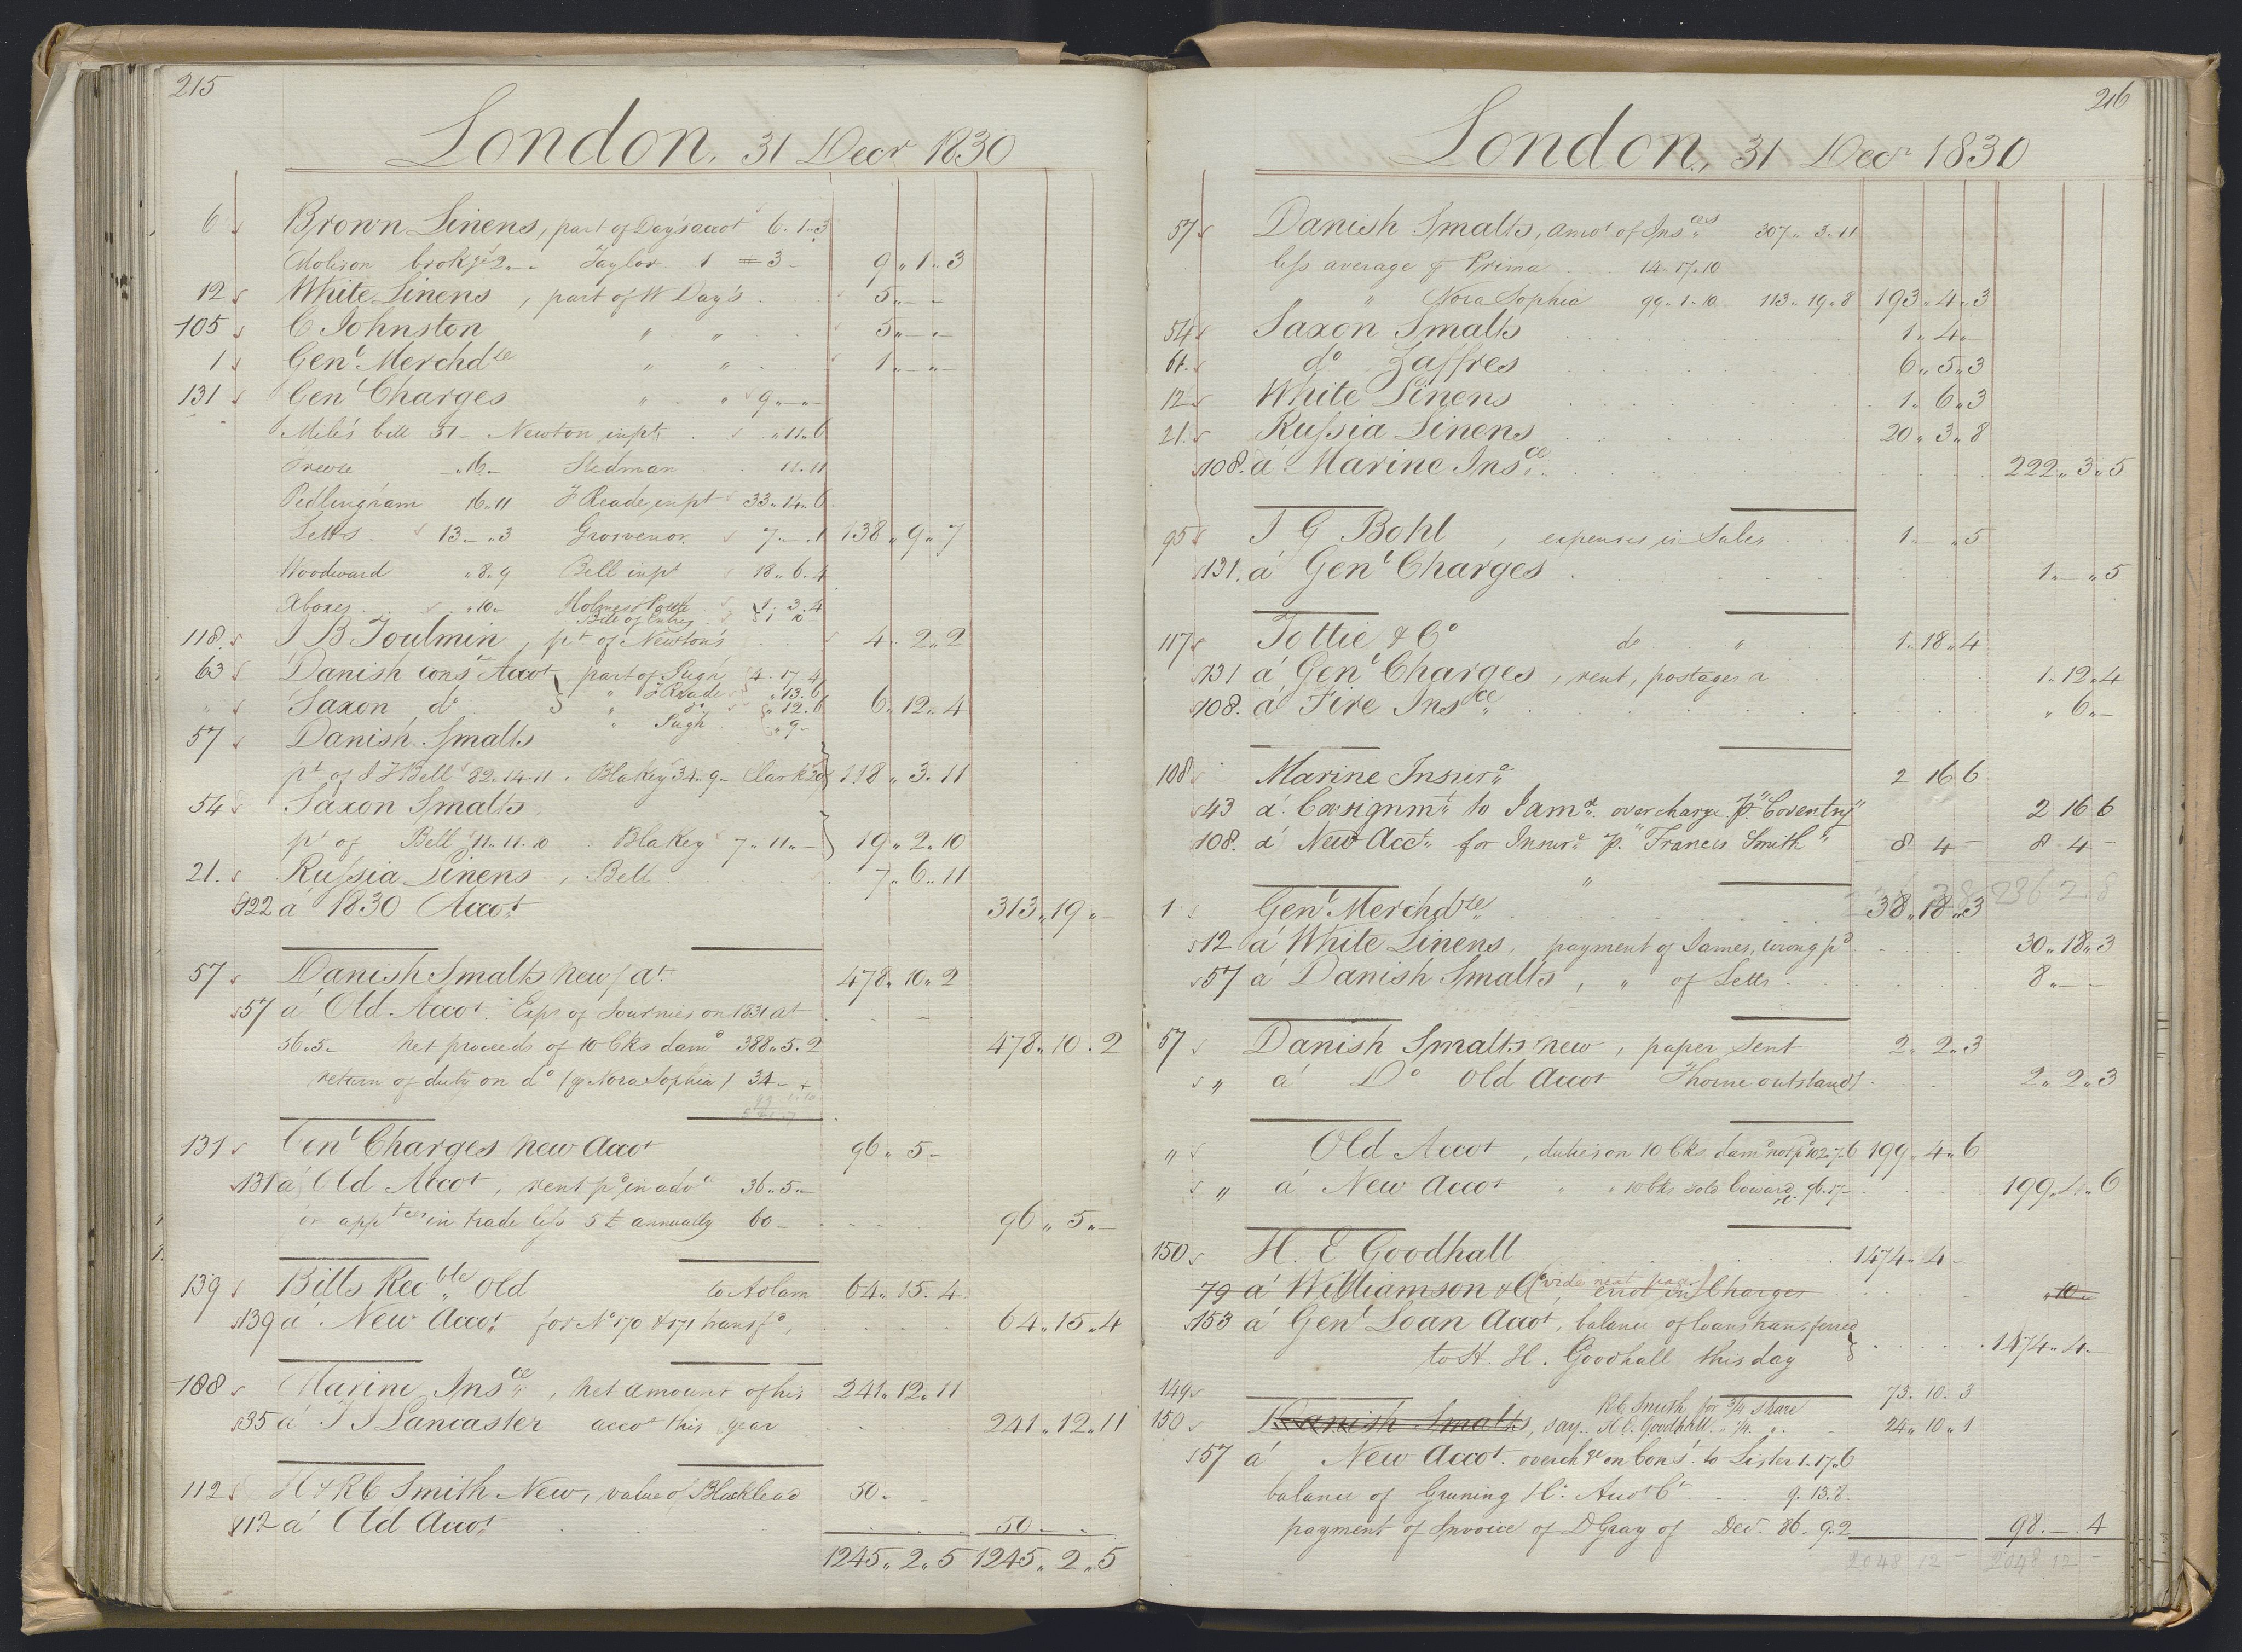 215
London, 31 Decr 1830
6 Brown Linens, part of Day's accot 6.1.3
Molison brokge 2,,- Taylor 1 = 3 - 9,,1,,3
12 White Linens, part of W Day's 5,,- -
105 C Johnston ,, ,, 5,,- -
1 Genl Merchdze ,, ,, 1,,- -
131 Genl Charges ,, ,, 9,,-,,-
Mile's bill 31- Newton inpt ,,11,,6
Freese ,,16- Stedman 11.11
Pedlingham 16.11 J Reade, inpt 33.14.6
Letts 13-,,3 Grosvenor 7.-.1 138,,9,,7
Woodward ,,8.9 Bell inpt 18,,6.4
Xboxes ,,10- Holmes & Powle 1.3.4
Bill of Entry 1 10-
118 J B Toulmin, pt of Newton's 4,,2,,2
63 Danish const Accot part of Pugh 4.17.4
,, J Reade ,,13.6
,, Saxon do ,, do ,,12.6 6,,12,,4
,, Pugh ,,9-
57 Danish Smalts
pt of J J Bell 82.14.11. Blakey 34.9- Clark 20 118,,3.11
54 Saxon Smalts
pt of Bell 11.11.10 Blakey 7,,11,,- 19,,2.10
21. Russia Linens, Bell 7,,6,,11
122 á 1830 Accot 313,,19,,-
57 Danish Smalts new / at 478,,10,,2
57 á Old Accot. Exps of Journies on 1831 at
56.5- net proceeds of 10 Cks damd 388,,5.2
return of duty on do (p Nora Sophia) 34-+ 478,,10.2
131 Genl Charges new accot 96,,5-
131 á Old Accot, rent pd in advce 36,,5,,-
or appces in trade less 5 £ annually 60- 96,,5,,-
139 Bills Recble old to Aslam 64,,15.4
139 á New Accot for No 170 & 171 transfd, 64,,15,,4
108 Marine Insce, net amount of his 241,,12,,11
35 á T J Lancaster accot this year 241,,12,,11
112 H & RC Smith New, value of Blacklead 50.-
112 á Old Accot 50-.
1245,,2,,5 1245,,2,,5
216
London, 31 Decr 1830
57 Danish Smalts, amot of Insces 307,,3.11
less average p Prima 14.17.10
,, ,, Nora Sophia 99.1.10 113.19.8 193,,4,,3
54 Saxon Smalts 1,,4,,-
64. do Zaffres 6,,5,,3
12 White Linens 1,,6,,3
21. Russia Linens 20,,3,,8
108. á Marine Insce 222,,3,,5
95 J G Bohl, expenses in Sales 1.-,,5
131. á Genl Charges 1,,-,,5
117 Tottie & Co do ,, 1.18.4
131 á Genl Charges, rent, postages 1.12.4
108. á Fire Insce ,,6,,-
108 Marine Insurce 2 16 6
43 á Consignmt to Jamca overcharge p "Coventry" 2 16 6
108. á New Acct for Insurce p. "Francis Smith" 8 4 - 8 4 -
236 2 8
1 Genl Merchdze 38,,18,,3
12 á White Linens, payment of James, wrong pd 30,,18,,3
57 á Danish Smalts, ,, of Letts 8,,- -
57 Danish Smalts new, paper sent 2,,2,,3
,, á Do old accot Thorne outstandg 2,,2,,3
,, Old Accot, duties on 10 Cks damd not pd 102.7.6 199,,4,,6
,, á New Accot ,, 10 Cks sold Coward &c. 96.17- 199,,4,,6
150 H. E Goodhall 1474,,4-
79 á Williamson & Co (vide next page) error in Charges ,,10-
153 á Genl Loan Accot, balance of loan transferred
to H. H. Goodhall this day 1474,,4-
149 RC Smith for 3/4 share 73.10.3
150 Danish Smalts, say. H.E. Goodhall. 1/4 ,,. 24,,10,,1
57 á New Accot. overchge on Const. to Lister 1.17.6
balance of Gruning H: Accot Ct 9.13.8.
payment of Invoice of D Gray of Decr 86.9.2 98.-.4
2048 12 - 2048 12 -